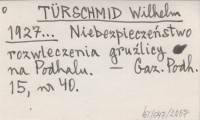 TÜRSCHMID Wilhelm
1927... Niebezpieczeństwo
rozwleczenia gruźlicy
na Podhalu. — Gaz. Podh.
15, nr 40.